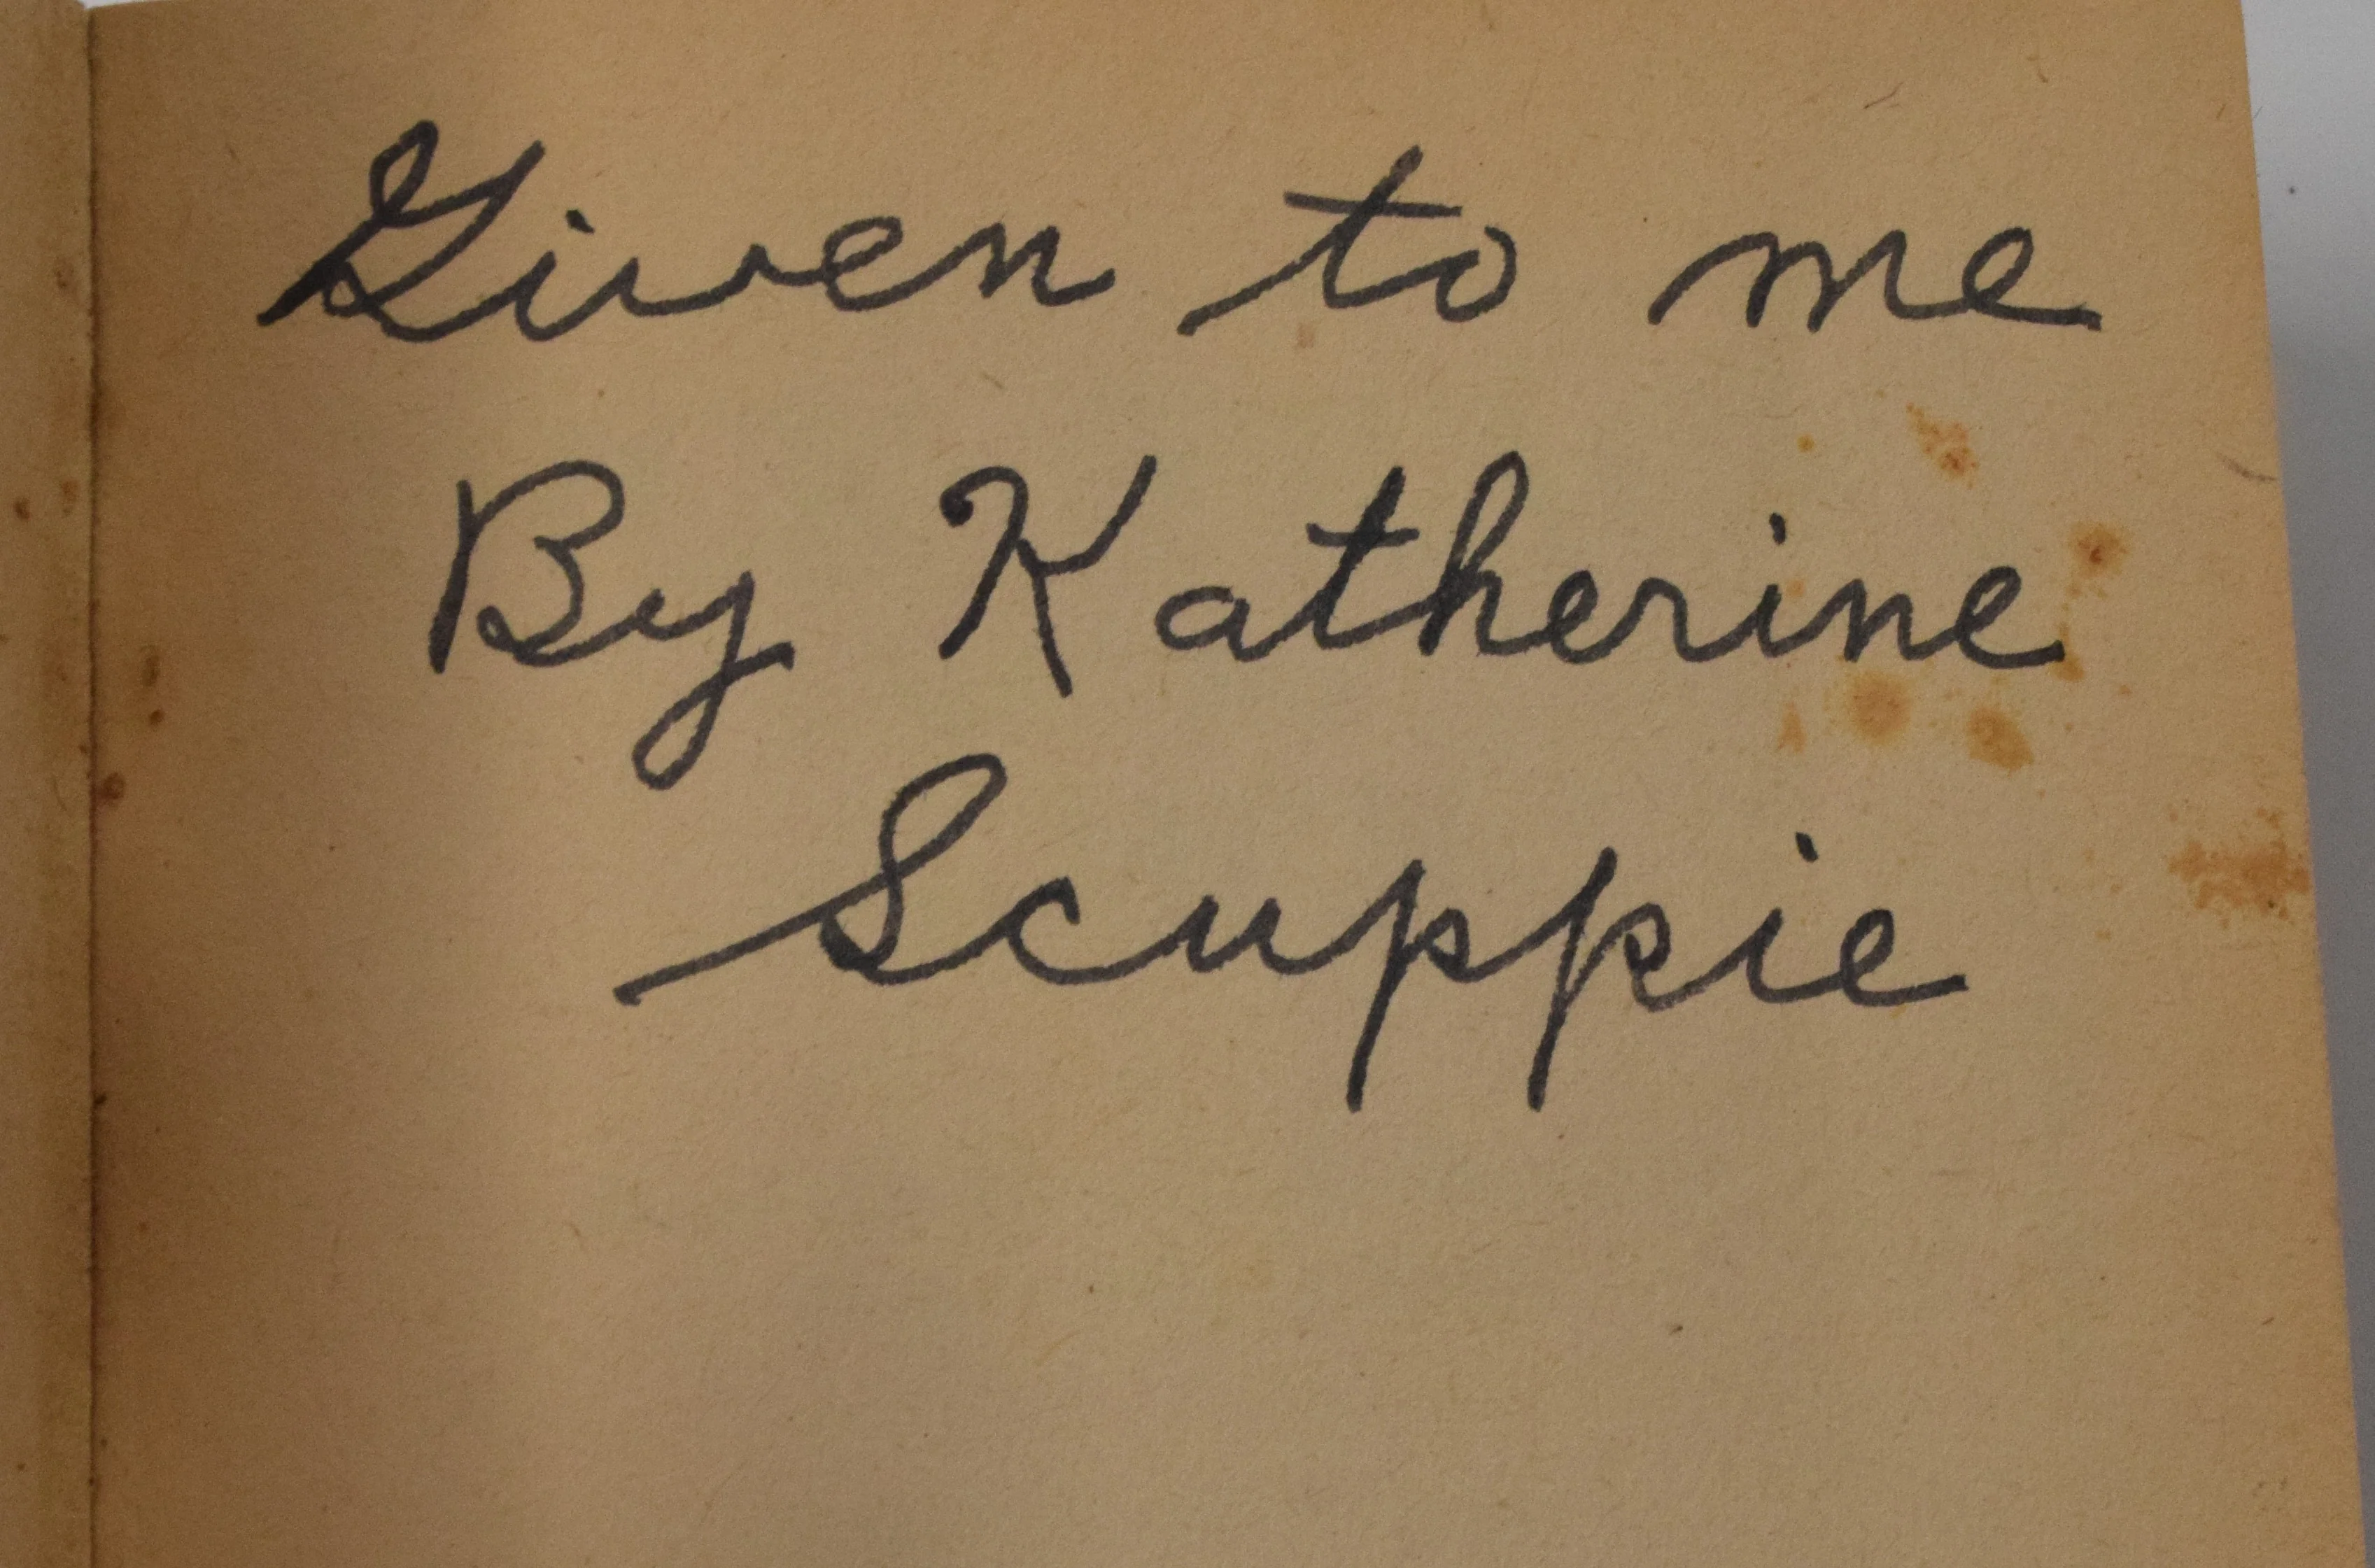 Given to me
By Katherine
Scuppie